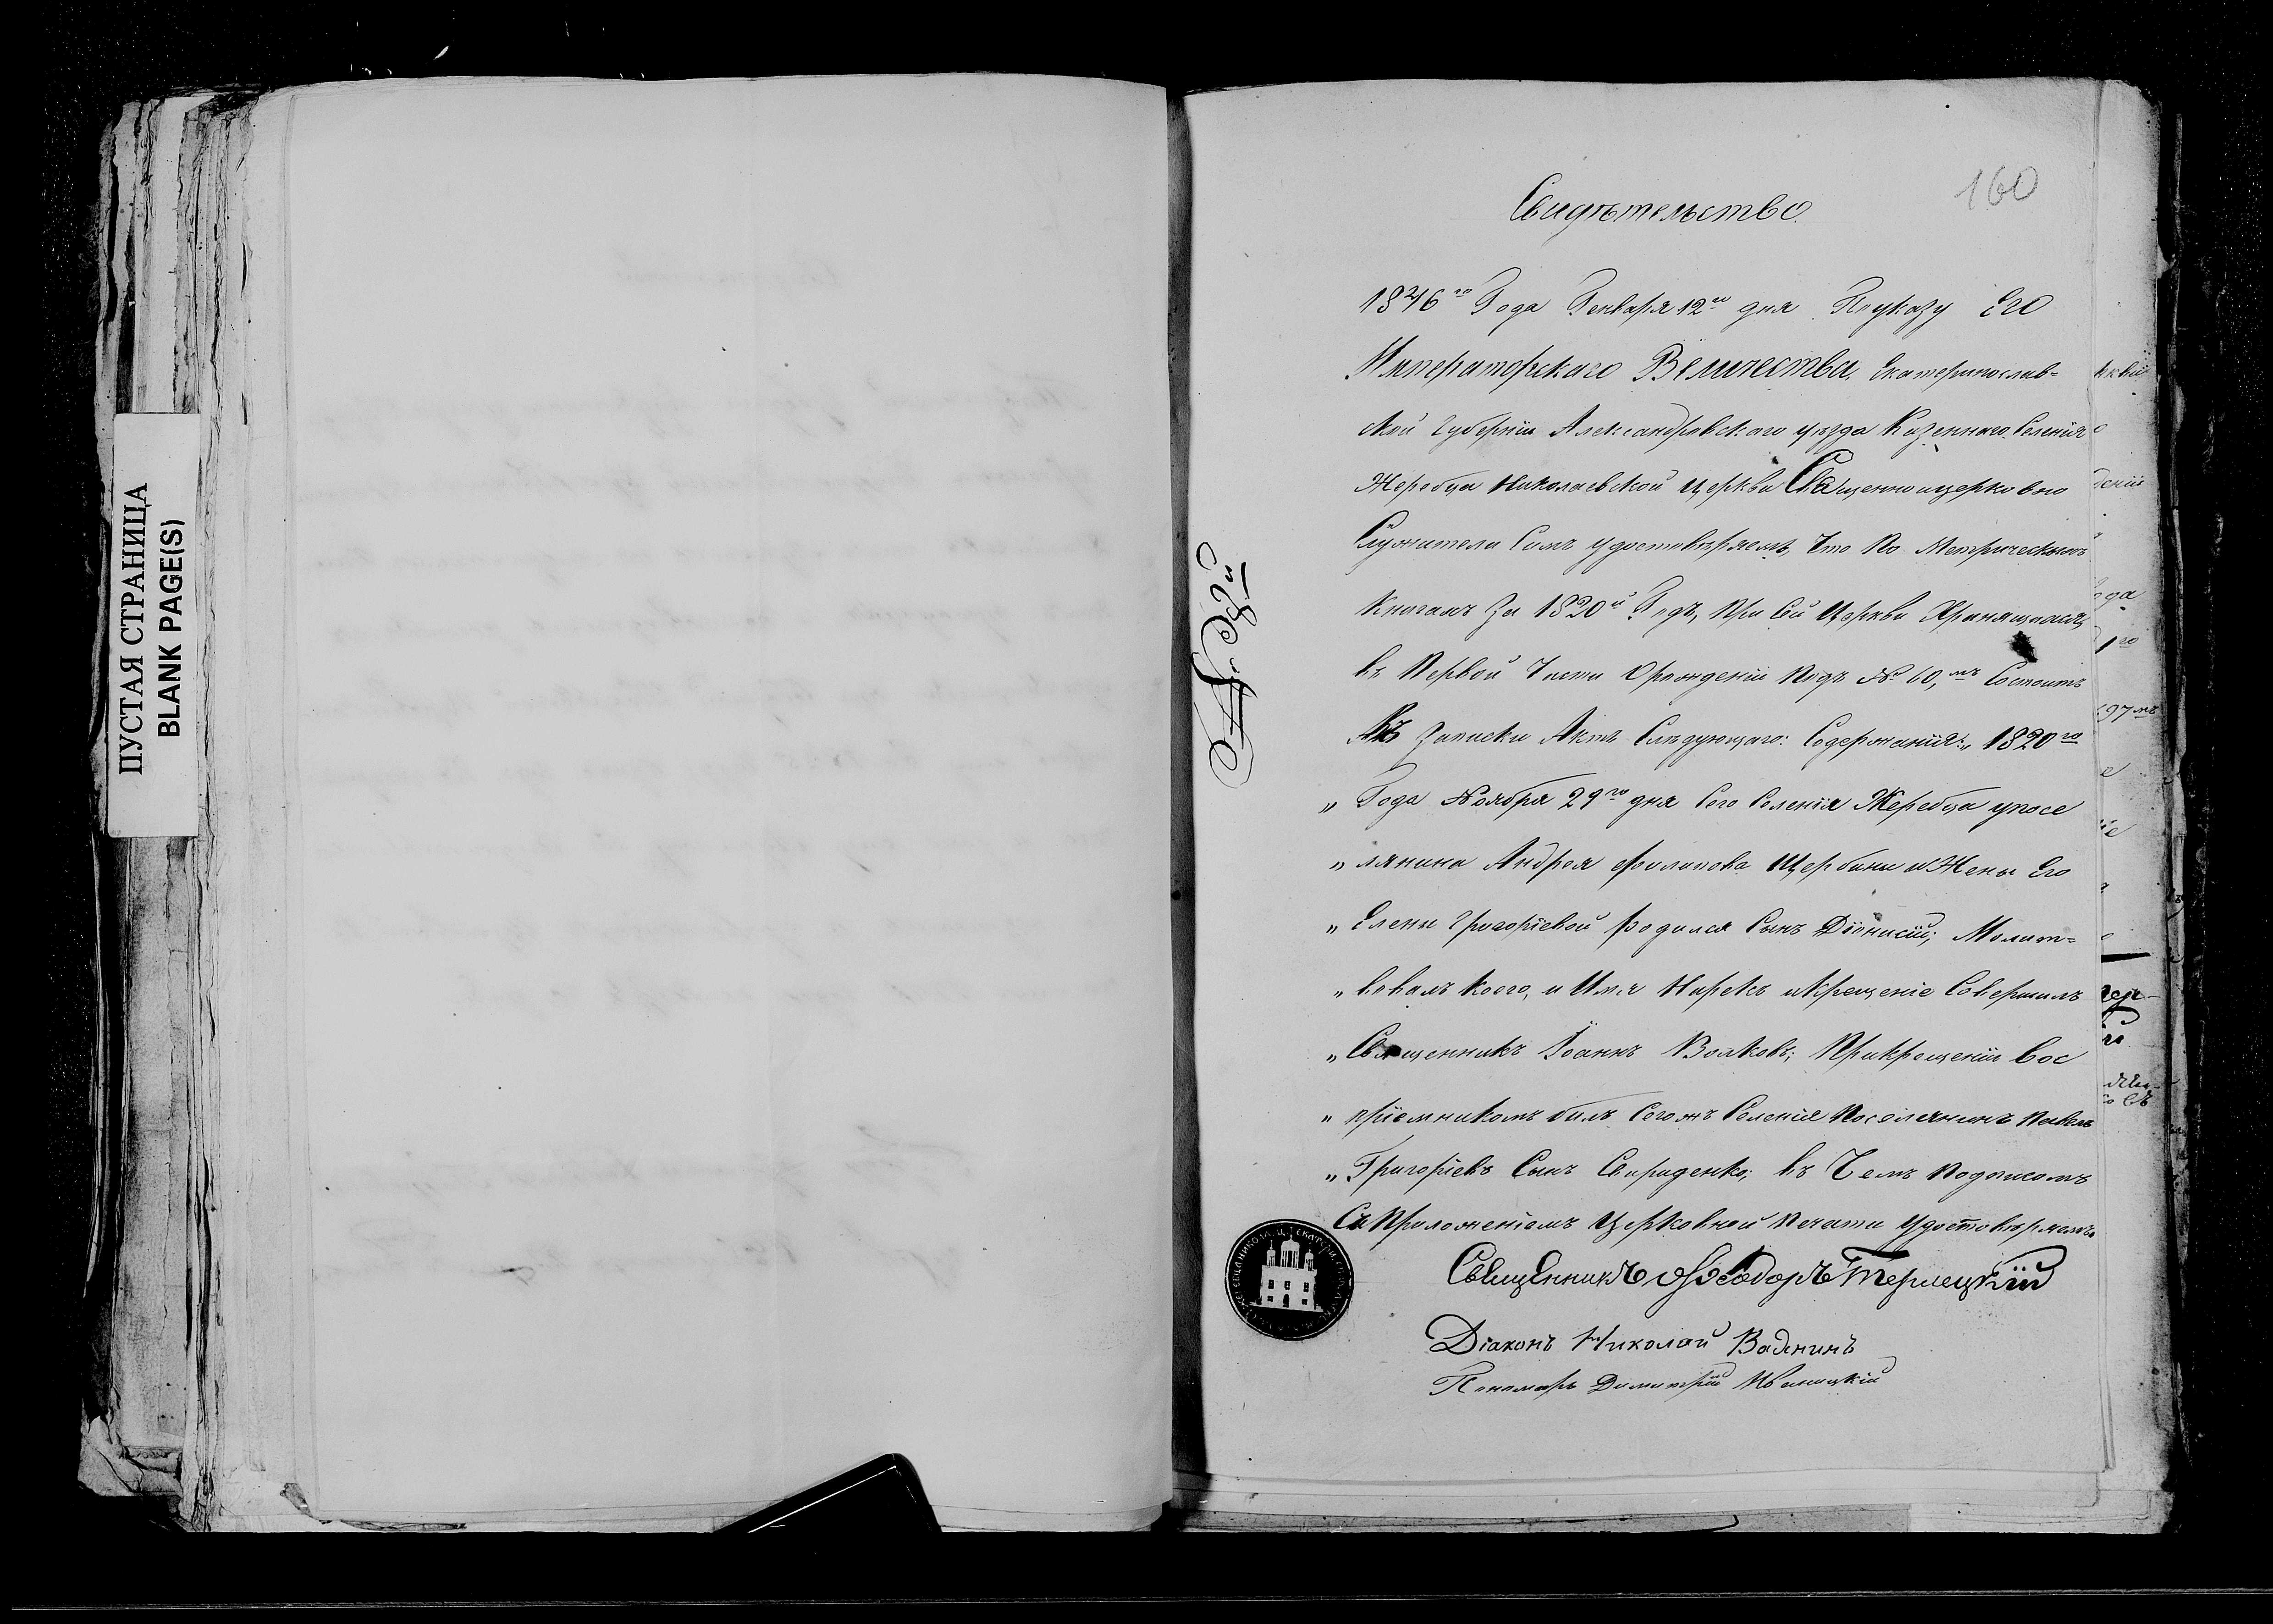 ПУСТАЯ СТРАНИЦА
BLANK PAGE(S)
160
Свидѣтельство.
1846го Года Генваря 12го дня По указу Его
Императорскаго Величества, Екатеринослав=
ской Губерніи Александровскаго уѣзда Казеннаго Селенія
Жеребца Николаевской Церкви Священноицерковно
Служители Симъ удостовѣряемъ, Что По Метрическимъ
Книгамъ За 1820й Годъ, При Сей Церкви Хранящимся,
въ Первой Части О рожденіи Подъ № 60,мъ Состоитъ
Въ Записки Актъ Слѣдующаго: Содержанія: „ 1820го
„ Года Ноября 29го дня Сего Селенія Жеребца упосе
„ лянина Андрея Филипова Щербины и Жены Его
„ Елены Григоріевой родился Сынъ Діонисій; Молит=
„ вовалъ Коего, и Имя Нарекъ и Крещеніе Совершилъ
„ Священникъ Іоаннъ Волковъ; При крещеніи Вос
„ пріемникомъ билъ Сегожъ Селенія Поселянинъ Павелъ
„ Григоріевъ Сынъ Свириденко; въ Чемъ Подписомъ
Съ Приложеніемъ Церковной Печати Удостовѣряемъ
Священникъ Ѳеодоръ Терлецкій
Діаконъ Николай Вадинъ
Пономарь Димитрій